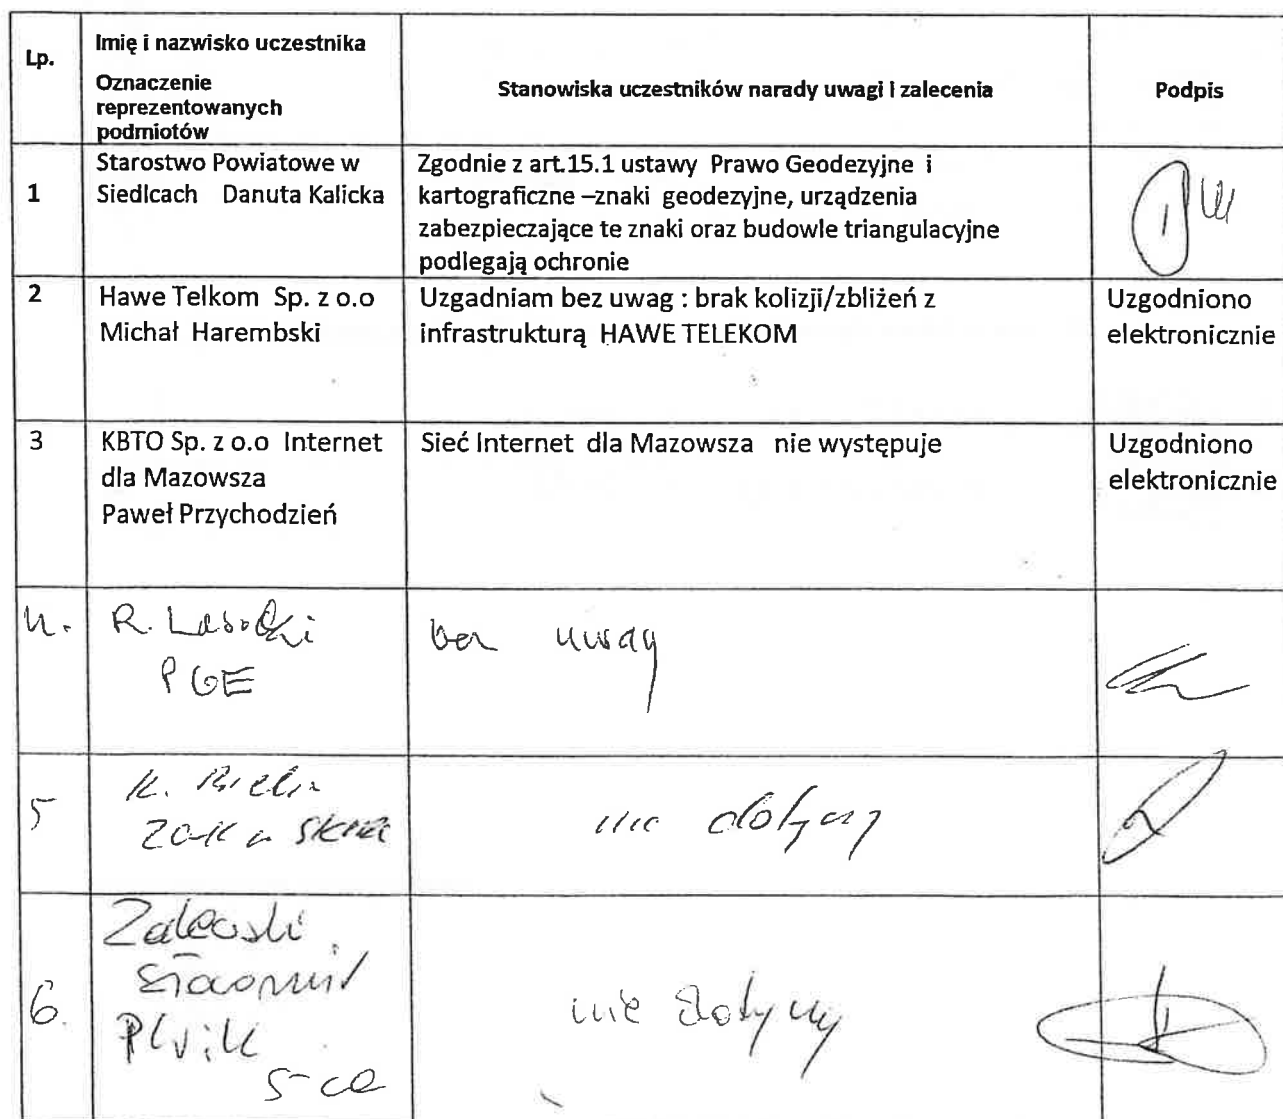 Lp.
Imię i nazwisko uczestnika
Oznaczenie
reprezentowanych
podmiotów
Stanowiska uczestników narady uwagi i zalecenia
Podpis
1
Starostwo Powiatowe w
Siedlcach Danuta Kalicka
Zgodnie z art.15.1 ustawy Prawo Geodezyjne i
kartograficzne –znaki geodezyjne, urządzenia
zabezpieczające te znaki oraz budowle triangulacyjne
podlegają ochronie
2
Hawe Telkom Sp. z o.o
Michał Harembski
Uzgadniam bez uwag : brak kolizji/zbliżeń z
infrastrukturą HAWE TELEKOM
Uzgodniono
elektronicznie
3
KBTO Sp. z o.o Internet
dla Mazowsza
Paweł Przychodzień
Sieć Internet dla Mazowsza nie występuje
Uzgodniono
elektronicznie
4.
R. Lasocki
PGE
bez uwag
5
K.
nie dotyczy
6.
Zalewski
Sławomir
PWiK
S-ce
nie dotyczy